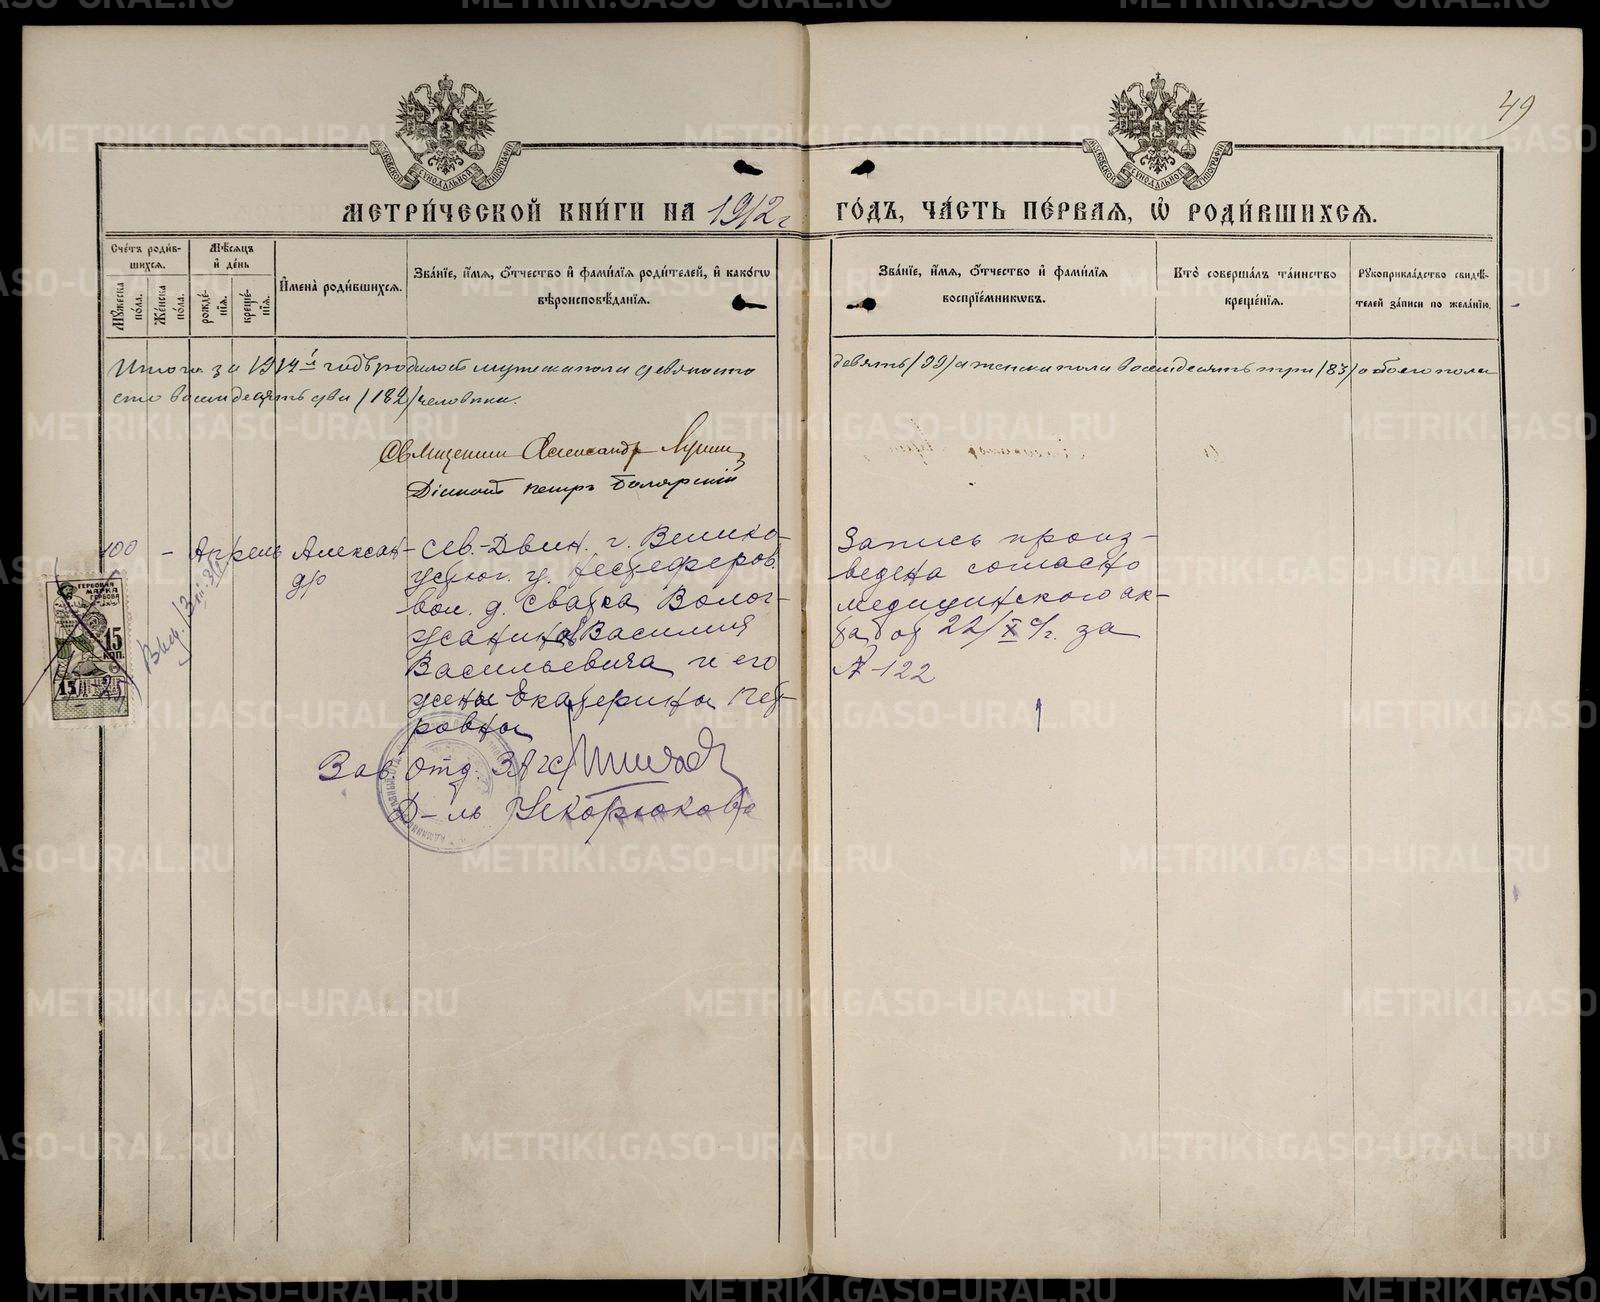 49
МЕТРИ́ЧЕСКОЙ КНИ́ГИ НА 1912 г
ГО́ДЪ, ЧА́СТЬ ПЕ́РВАѦ, Ѡ҆ РОДИ́ВШИХСѦ.
Сче́тъ роди́в-
шихсѧ.
Мꙋ́жеска по́ла.
Же́нска по́ла.
Мѣ́сѧцъ
и҆ де́нь
рожде́-
нїѧ.
креще́-
нїѧ.
И҆мена̀ роди́вшихсѧ.
Зва́нїе, и҆́мѧ, ѻ҆́тчество и҆ фами́лїѧ роди́телей, и҆ како́гѡ
вѣроисповѣ́данїѧ.
Зва́нїе, и҆́мѧ, ѻ҆́тчество и҆ фами́лїѧ
воспрїе́мникѡвъ.
Кто̀ соверша́лъ та́инство
креще́нїѧ.
Рꙋкоприкла́дство свидѣ́-
телей за́писи по жела́нїю.
Итого за 1914й годъ родилось мужеска пола девяносто
девять /99/ а женска пола восемьдесятъ три /83/ а обоего пола
сто восемьдесятъ два /182/ человека.
Священник Александр
Діаконъ Петръ Боляр­скій
100 - Апрель
Александр
Сев.-Двин. г. Велико-
Устюг. у. Нестеферов.
вол. д. Сватка Волог-
жанинов Василия
Васильевича и его
жены Екатерины Пет-
ровны
Зав Отд. ЗАГС
Д-ль Чекорюкова
Запись произ-
ведена согласно
медицинского ак-
та от 22/X с/г. за
№ 122
ГЕРБОВАЯ
МАРКА
15
КОП.
15
METRIKI.GASO-URAL.RU